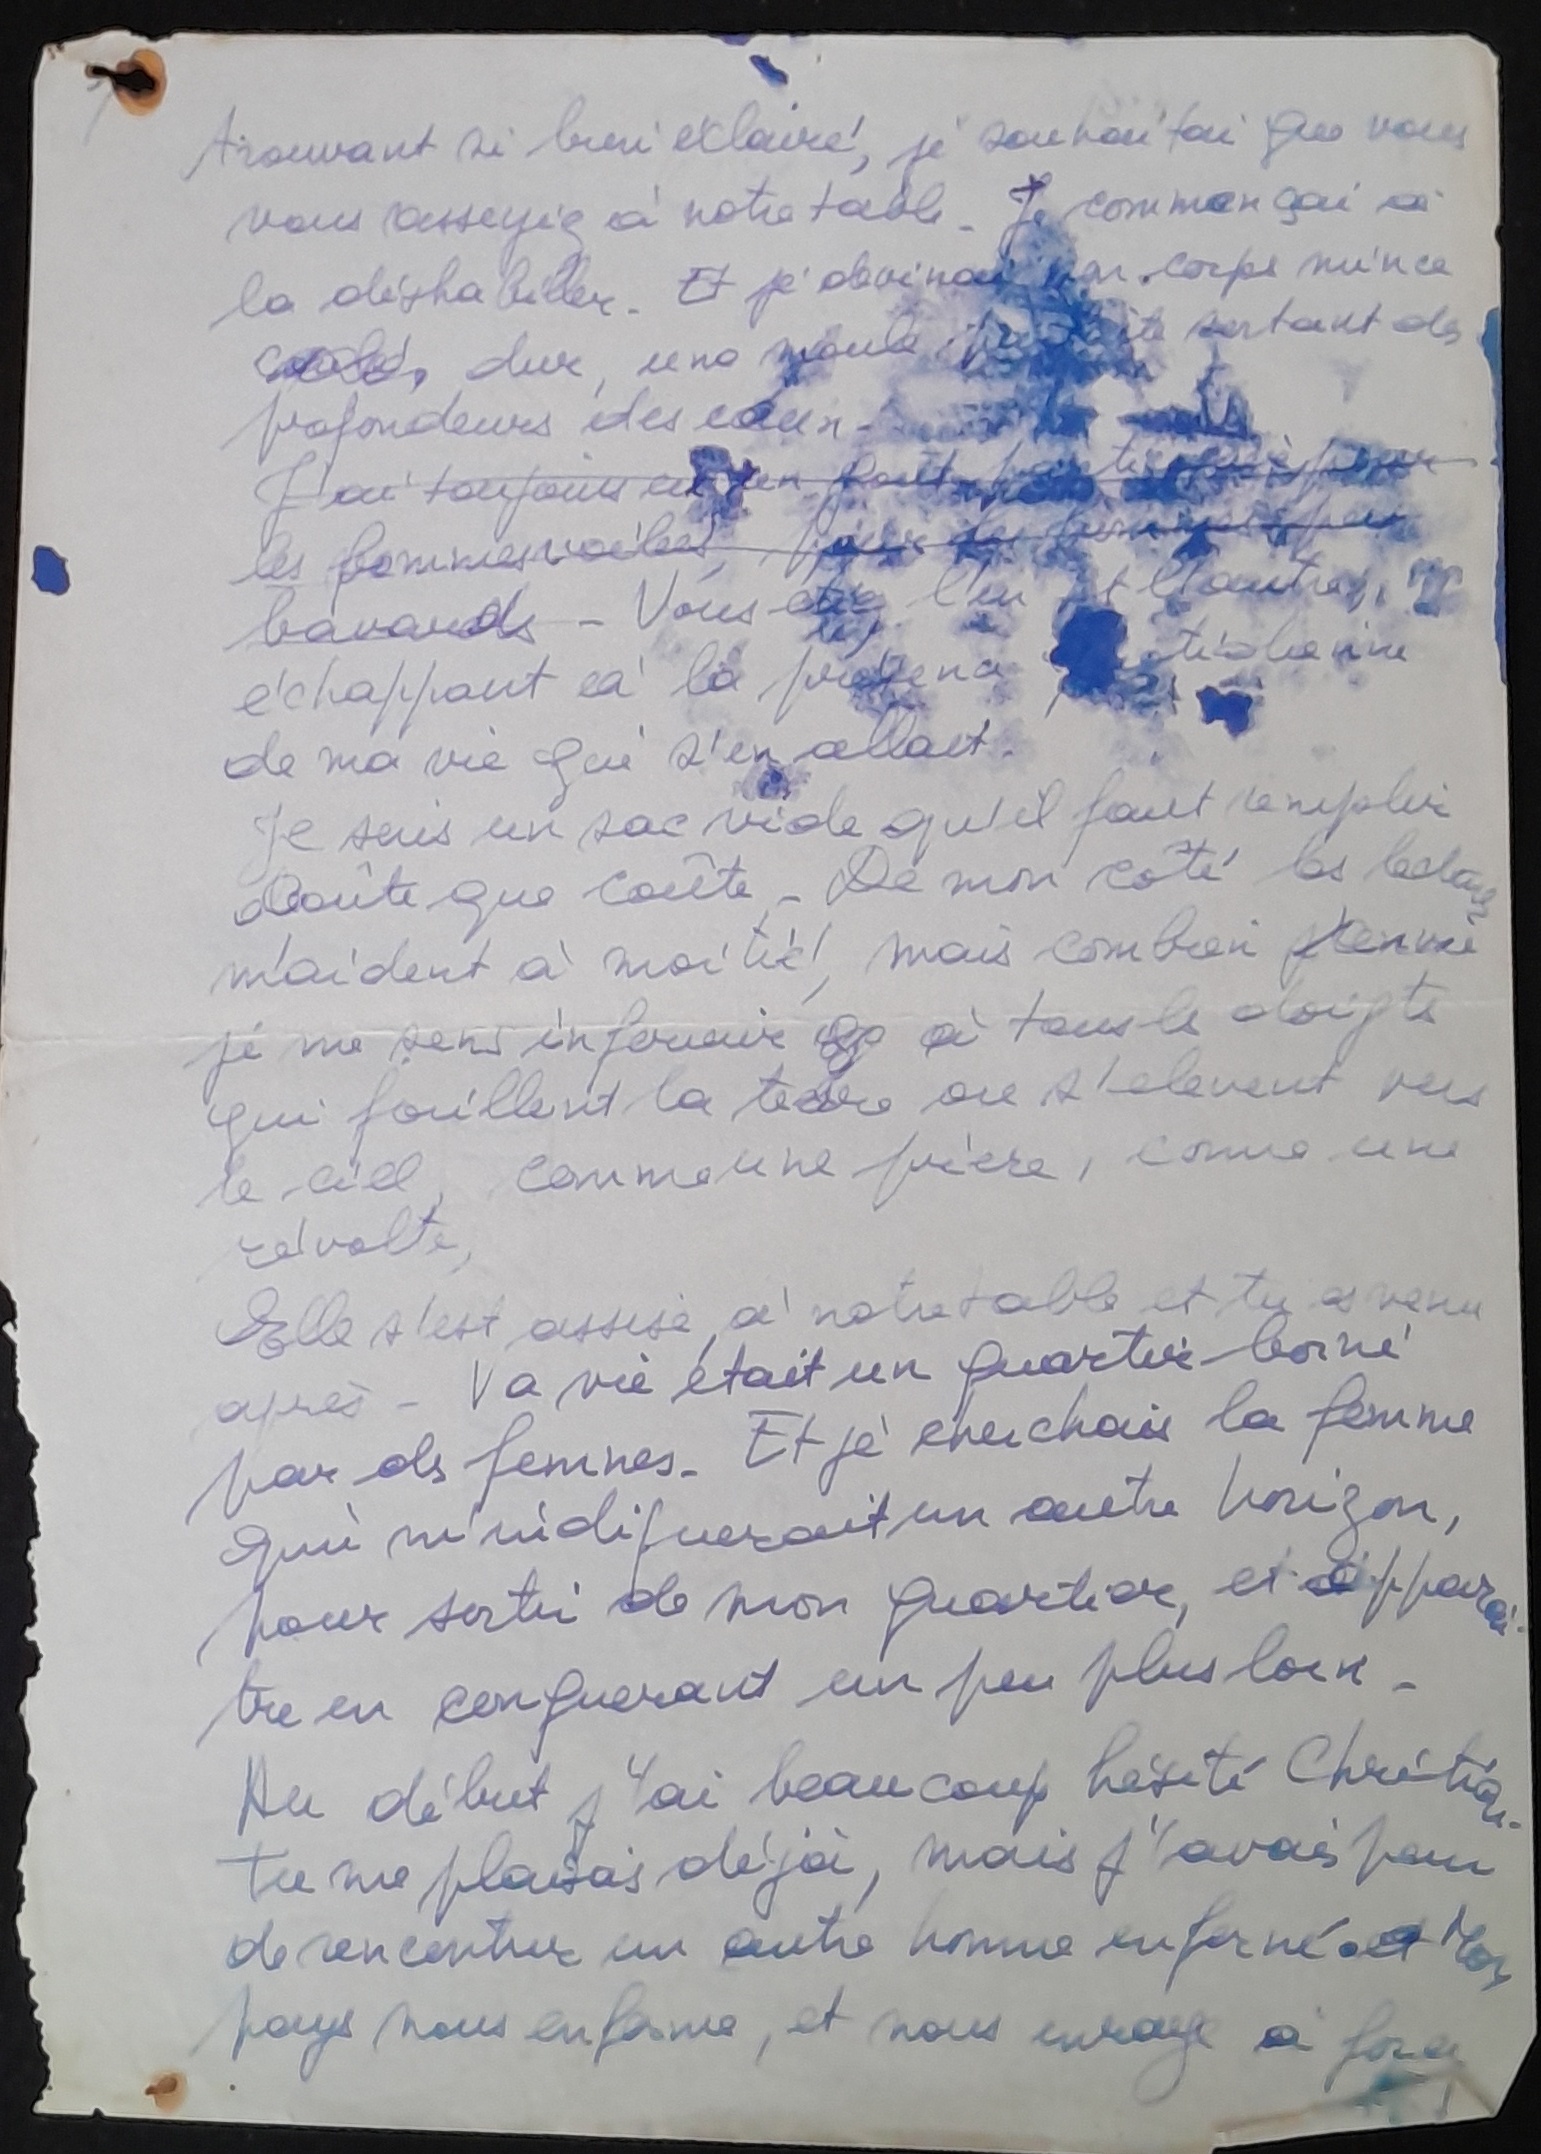 trouvant si bien éclairé, je souhaitai que vous
vous asseyiez à notre table - Je commençai à
la déshabiller. Et je devinai son corps mince
dur, une moule sortant des
profondeurs des eaux -
J'ai toujours eu un goût particulier pour
les femmes voilées, pour les hommes peu
bavards - Vous étiez l'un et l'autre,
échappant à la
de ma vie qui s'en allait.
Je suis un sac vide qu'il faut remplir
Coûte que coûte - De mon côté les
m'aident à moitié, mais combien
je me sens inférieur à tous le doigts
qui fouillent la terre ou s'elevent vers
le ciel, comme une prière, comme une
révolte,
Elle s'est assise à notre table et tu es venu
après - Va vie était un quartier borné
par des femmes - Et je cherchais la femme
qui m'indiquerait un autre horizon,
pour sortir de mon quartier, et apparaî-
tre en conquerant un peu plus loin -
Au début j'ai beaucoup hésité
tu me plaisais déjà, mais j'avais peur
de rencontrer un autre homme enfermé
pays nous enferme, et nous enrage à force